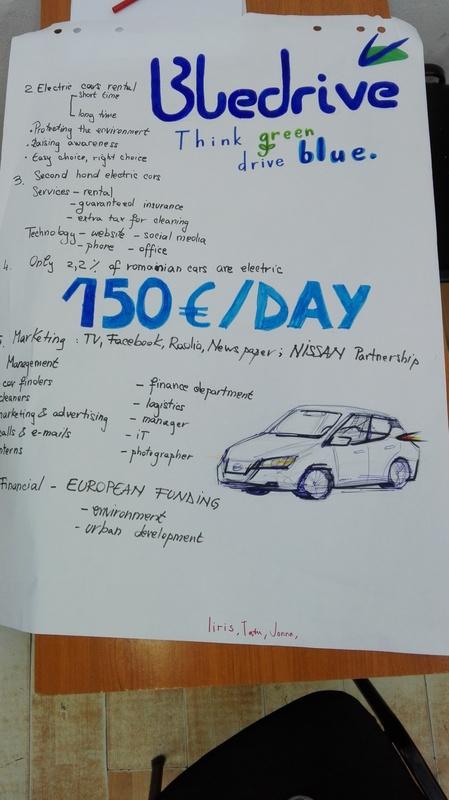 Bluedrive
Think green
drive blue.
2 Electric cars rental
short time
long time
• Protecting the environment
• Raising awareness
• Easy choice, right choice
3. Second hand electric cars
Services - rental
- guaranteed insurance
- extra tax for cleaning
Technology - website - social media
- phone - office
4. Only 2,2 % of romanian cars are electric
150€/DAY
5. Marketing : TV, Facebook, Radio, Newspaper ; NISSAN Partnership
Management
car finders
cleaners
marketing & advertising
calls & e-mails
interns
- finance department
- logistics
- manager
- iT
- photographer
Financial - EUROPEAN FUNDING
- environment
- urban development
Iiris,